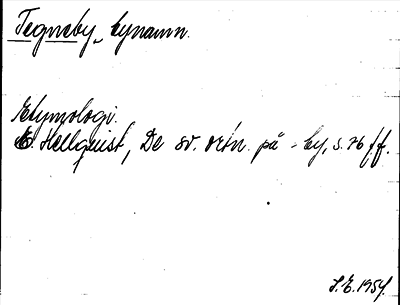 Tegneby, bynamn.
Etymologi.
E. Hellquist, De sv. ortn. på -by, s. 76 ff.
S.E. 1954.